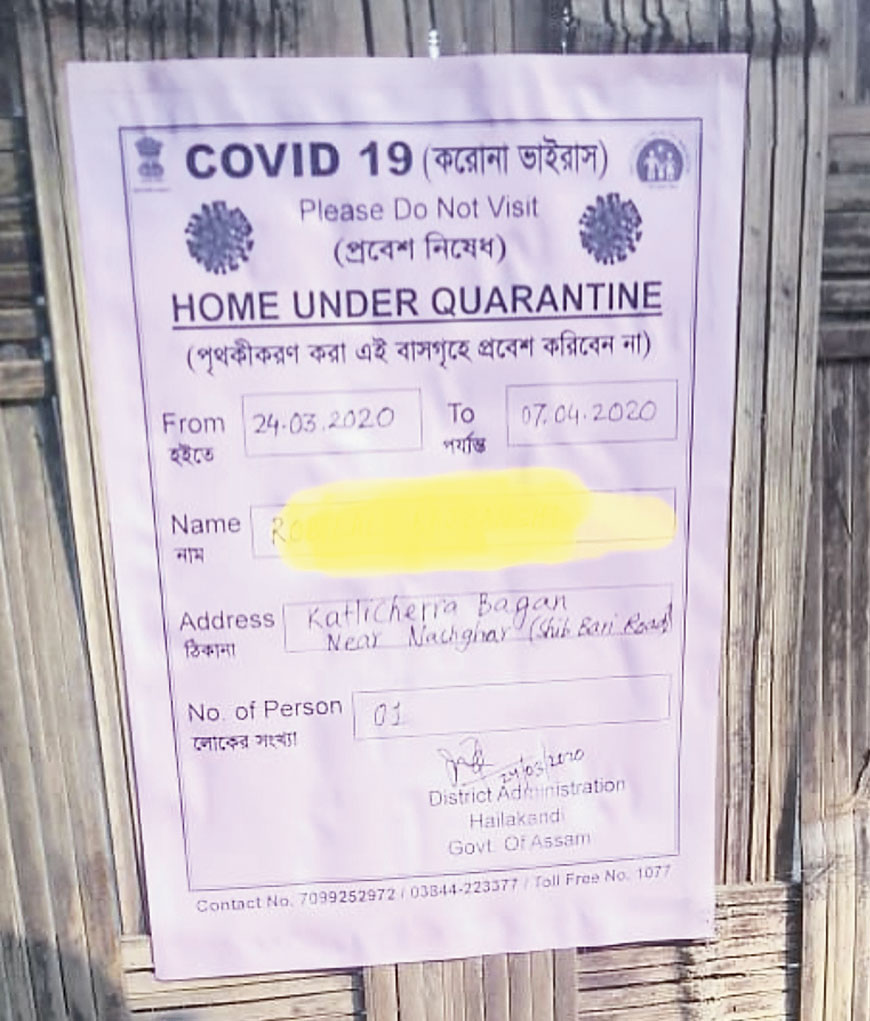 COVID 19 (করোনা ভাইরাস)
Please Do Not Visit
(প্রবেশ নিষেধ)
HOME UNDER QUARANTINE
(পৃথকীকরণ করা এই বাসগৃহে প্রবেশ করিবেন না)
From 24.03.2020 To 07.04.2020
হইতে পর্যন্ত
Name
নাম
Address Katlicherra Bagan
ঠিকানা Near Nachghar (Shib Bari Road)
No. of Person 01
লোকের সংখ্যা
24/03/2020
District Administration
Hailakandi
Govt. Of Assam
Contact No. 7099252972 / 03844-223377 / Toll Free No. 1077